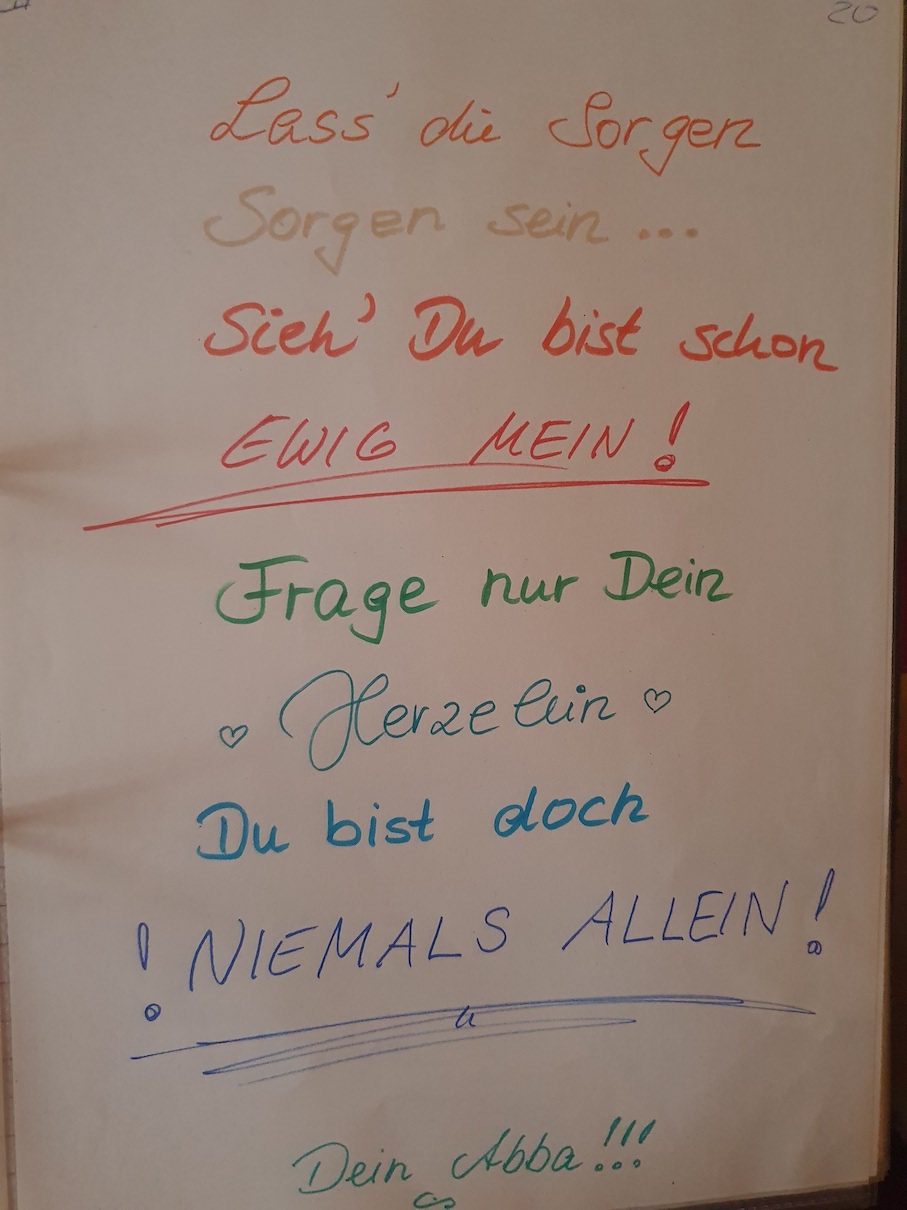 20
Lass' die Sorgen
Sorgen sein...
Sieh' Du bist schon
EWIG MEIN!
Frage nur Dein
♡ Herzelein ♡
Du bist doch
! NIEMALS ALLEIN!
Dein Abba!!!